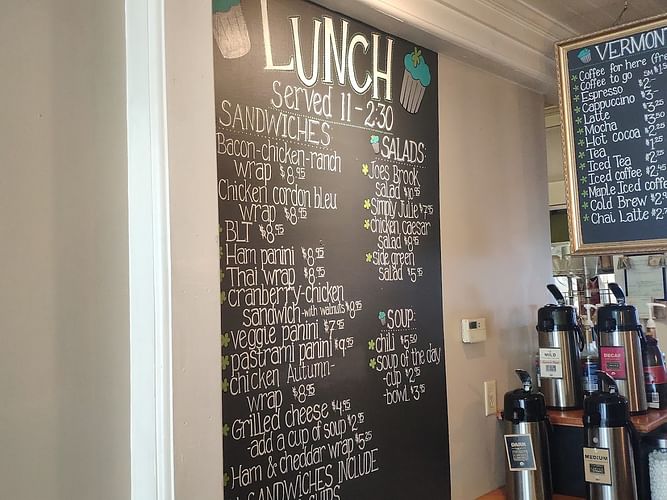 LUNCH
served 11 - 2:30
SANDWICHES
Bacon-chicken-ranch
wrap $8.95
Chicken cordon bleu
wrap $8.95
BLT $8.95
Ham panini $8.95
Thai wrap $8.95
cranberry-chicken
sandwich -with walnuts $8.95
veggie panini $7.95
pastrami panini $9.95
chicken Autumn-
wrap $8.95
Grilled cheese $4.95
-add a cup of soup $2.95
Ham & cheddar wrap $5.25
SANDWICHES INCLUDE
SALADS:
Joes Brook
salad $10.95
Simply Julie $7.95
chicken caesar
salad $8.95
side green
salad $5.95
SOUP:
chili $5.50
soup of the day
-cup $2.95
-bowl $3.95
VERMONT
Coffee for here
Coffee to go
Espresso
Cappuccino
Latte
Mocha
Hot cocoa
Tea
Iced Tea
Iced coffee
Maple Iced coffee
Cold Brew
Chai Latte
MILD
DECAF
DARK
MEDIUM